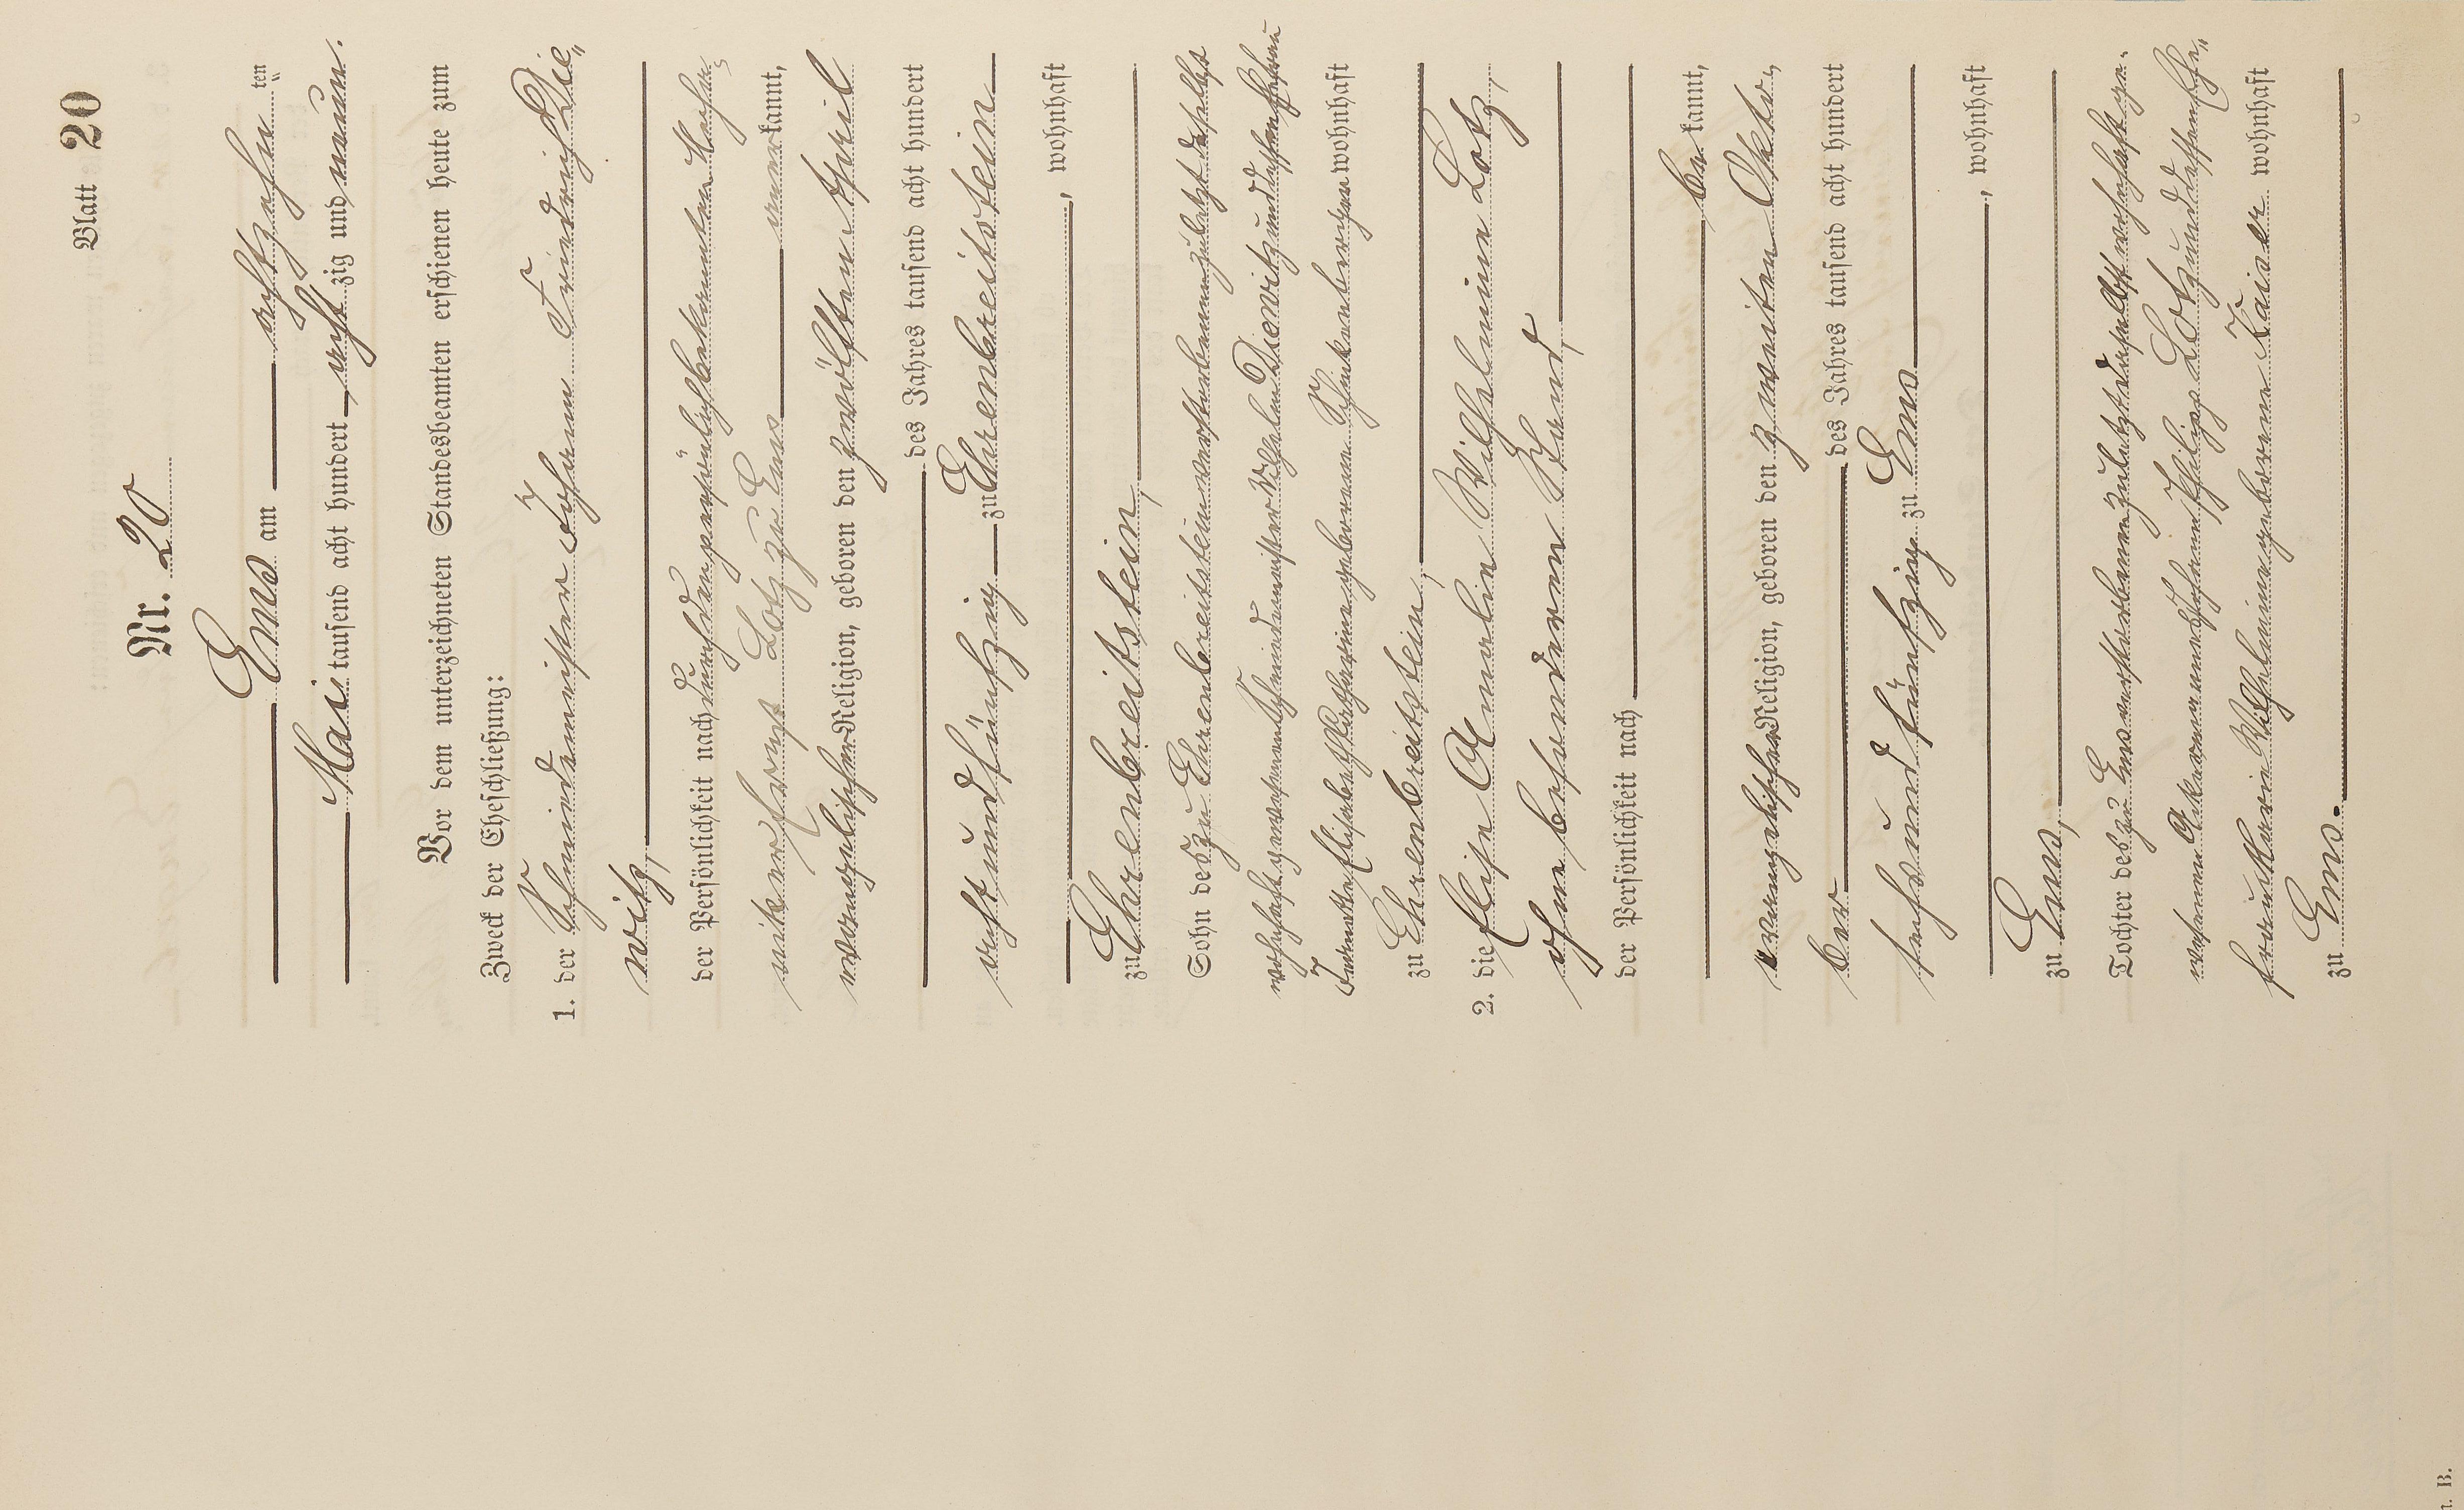 Blatt 20
Nr. 20
Ems am achtzehn ten
Mai tausend acht hundert acht zig und neun.
Vor dem unterzeichneten Standesbeamten erschienen heute zum
Zweck der Eheschließung:
1. der Schneidermeister Johann Friedrich Die„
witz,
der Persönlichkeit nach durch den persönlich bekannten
Ernst Lotz zu Ems anerkannt,
evangelischer Religion, geboren den zwölften April
des Jahres tausend acht hundert
acht und fünfzig zu Ehrenbreitstein
, wohnhaft
zu Ehrenbreitstein,
Sohn des zu Ehrenbreitstein verstorbenen zuletzt daselbst
wohnhaft gewesenen Schneidermeister Wilhelm Diewitz und dessen Ehefrau
Elisabeth Katharina geborene wohnhaft
zu Ehrenbreitstein,
2. die Elise Amalie Wilhelmine Lotz,
ohne besonderen Stand,
der Persönlichkeit nach
be kannt,
evangelischer Religion, geboren den zweiten Okto„
ber des Jahres tausend acht hundert
sechs und fünfzig zu Ems
, wohnhaft
zu Ems,
Tochter des zu Ems verstorbenen zuletzt daselbst wohnhaft ge„
wesenen Johann Philipp Lotz und dessen Ehe„
frau Wilhelmine geborene Kaiser wohnhaft
zu Ems.
B.